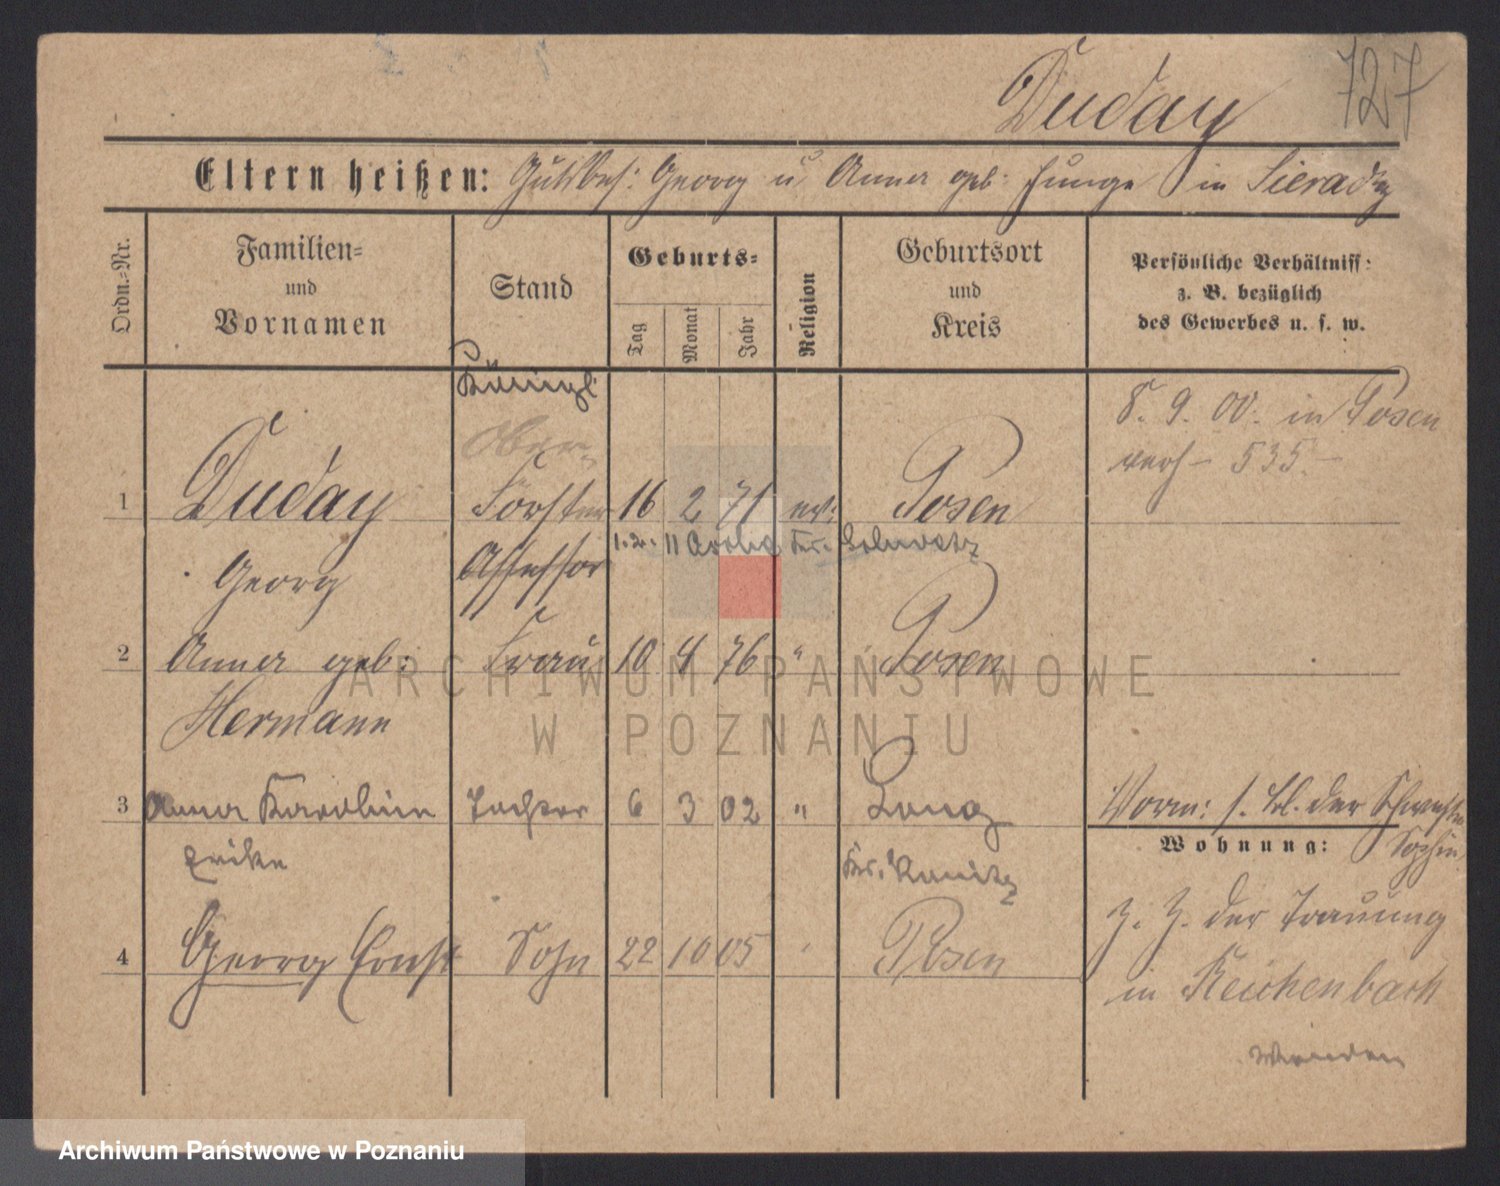 Duday 727
Eltern heißen: Gutsbes: Georg u Anna geb: Junge in Sieradz
Ordn.-Nr.
Familien-
und
Vornamen
Stand
Geburts-
Tag
Monat
Jahr
Religion
Geburtsort
und
Kreis
Persönliche Verhältniss:
z. B. bezüglich
des Gewerbes u. s. w.
Königl:
Ober-
8. 9. 00. in Posen
verh – 535. –
1 Duday Förster 16 2 71 ev: Posen
Georg Assessor
2 Anna geb: Frau 10 4 76 " Posen
Hermann
3 Anna Karoline Tochter 6 3 02 "
Erika
Vorm: s. bl. der
Wohnung:
4 Georg Ernst Sohn 22 10 05 Posen
z. Z. der Trauung
in Reichenbach
ARCHIWUM PAŃSTWOWE
W POZNANIU
Archiwum Państwowe w Poznaniu